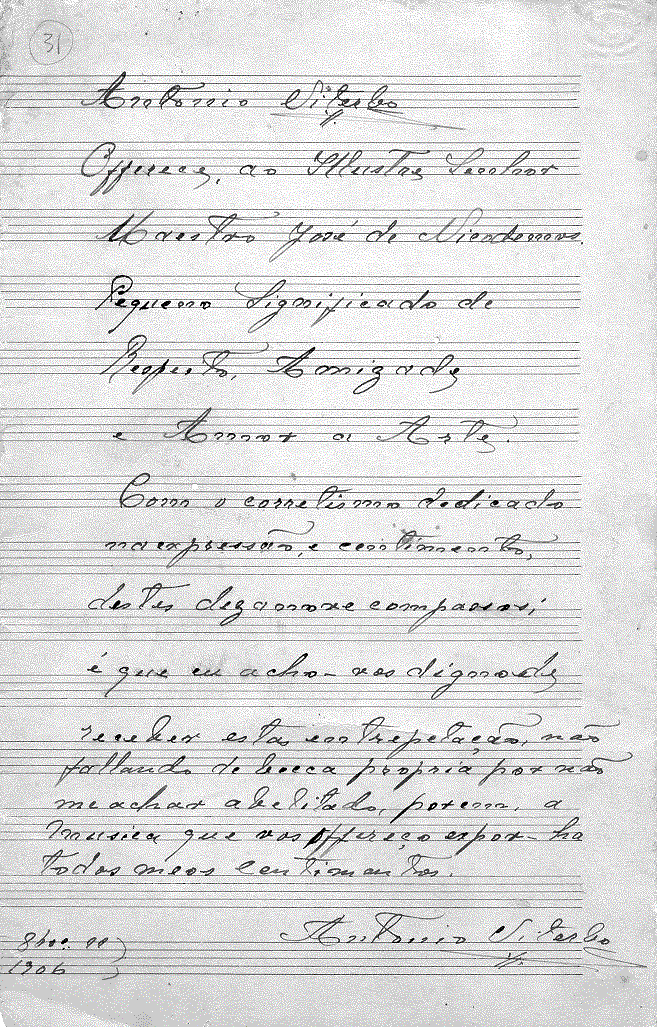 31
Antonio Viterbo
Offerece, ao Illustre Senhor
Maestro José de Nicodemos.
Pequeno Significado de
Respeito, Amizade
e Amor a Arte.
Com o corretismo dedicado
na expressão, e centimento,
destes dezanove compaços;
é que eu acho-vos digno de
receber estas entrepetação, não
fallando de bocca propria por não
me achar abelitado, porem, a
Musica que vos offereço expor-ha
todos meos centimentos.
Antonio Viterbo
1906